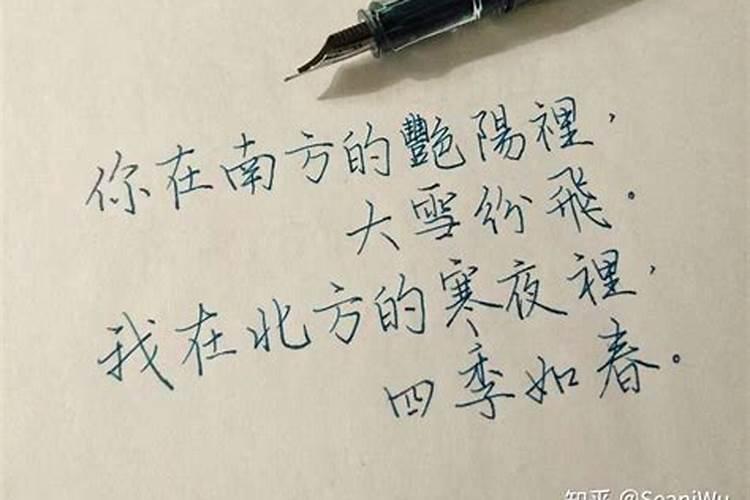 你在南方的艷陽裡，
大雪紛飛。
我在北方的寒夜裡，
四季如春。
知乎 @SeaniWu